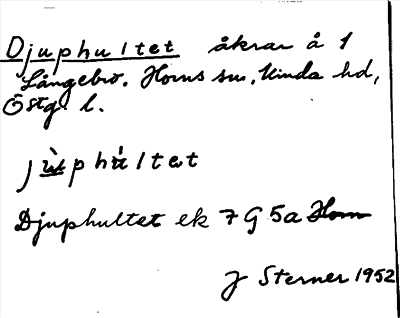 Djuphultet åkrar å 1
Långebro. Horns sn, Kinda hd,
Östg. l.
jùphúltet
Djuphultet ek 7 G 5a Horn
J Sterner 1952